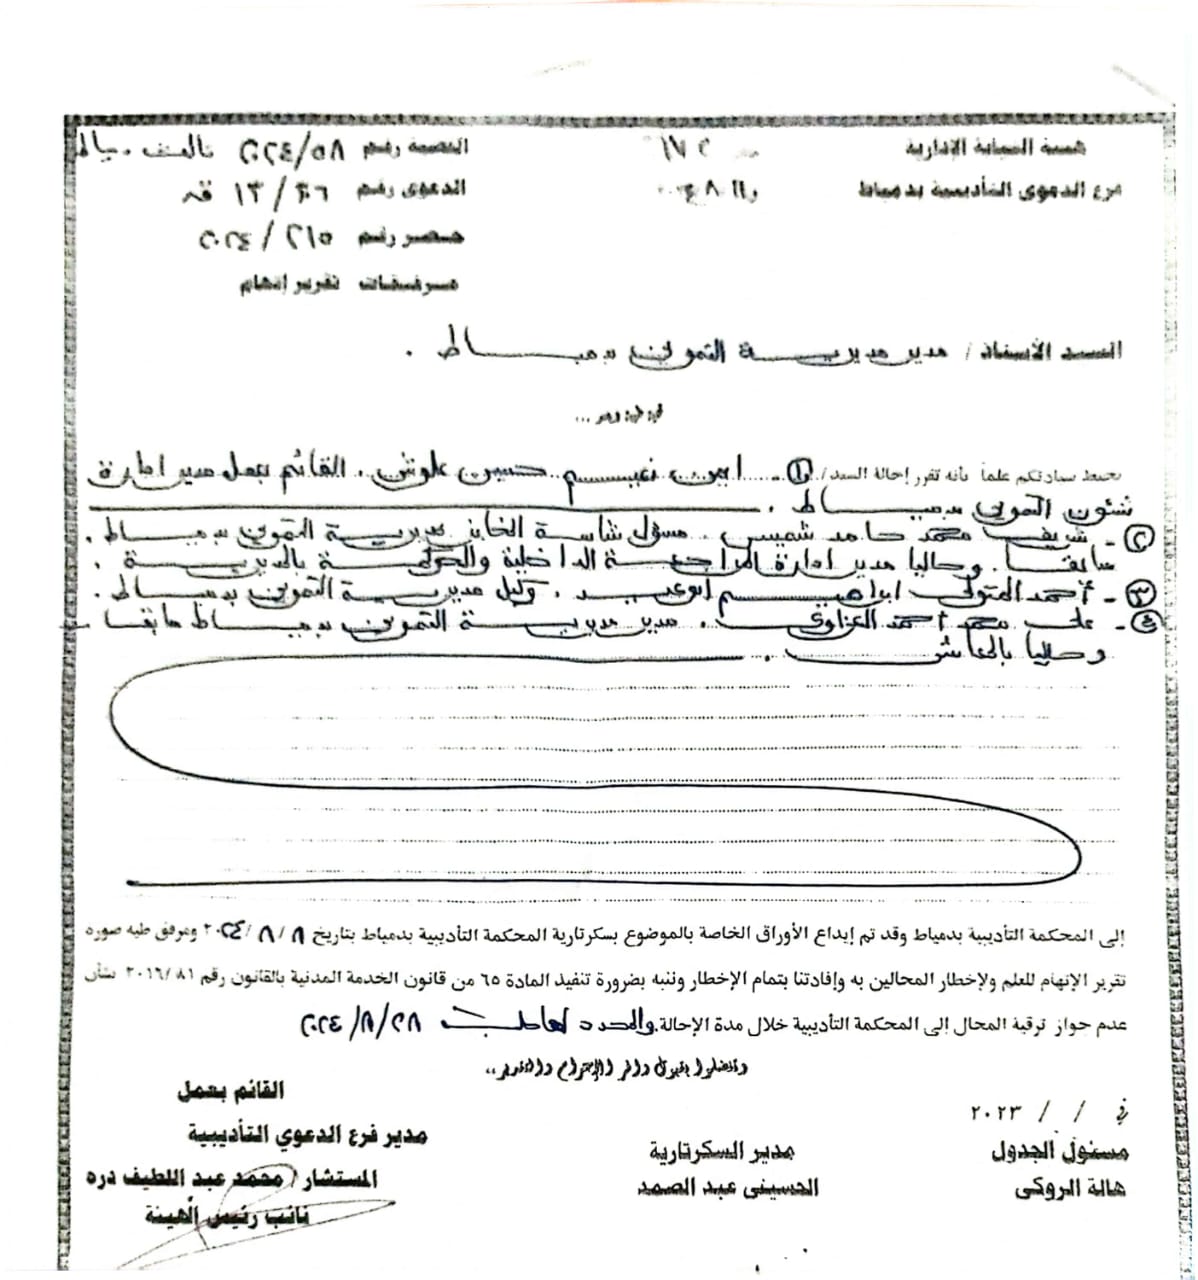 هيئة النيابة الإدارية
فرع الدعوى التأديبية بدمياط
القضية رقم ٢٠٢٤/٥٨
الدعوى رقم ١٣/ ق
حصر رقم ٢٠٢٤/٢١٥
مرفقات تقرير إتهام
السيد الأستاذ / مدير مديرية التموين بدمياط .
نحيط سيادتكم علماً بأنه تقرر إحالة السيد/ ١- ايمن نعيم حسين علوش . القائم بعمل مدير ادارة
شئون التموين بدمياط .
٢- شريف محمد حامد شميس . مسؤل بمديرية التموين بدمياط .
سابقا . وحاليا مدير ادارة المراجعة الداخلية والحوكمة بالمديرية .
٣- أحمد المتولى ابراهيم ابوعيد . وكيل مديرية التموين بدمياط .
٤- على محمد أحمد العزاوى . مدير مديرية التموين بدمياط سابقا
وحاليا بالمعاش .
إلى المحكمة التأديبية بدمياط وقد تم إيداع الأوراق الخاصة بالموضوع بسكرتارية المحكمة التأديبية بدمياط بتاريخ ٨ /٨ /٢٠٢٤ ومرفق طيه صوره
تقرير الإتهام للعلم ولإخطار المحالين به وإفادتنا بتمام الإخطار وننبه بضرورة تنفيذ المادة ٦٥ من قانون الخدمة المدنية بالقانون رقم ٢٠١٦/٨١ بشأن
عدم جواز ترقية المحال إلى المحكمة التأديبية خلال مدة الإحالة. والمحدد لها جلسة ٢٠٢٤/٨/٢٨
وتفضلوا بقبول وافر الإحترام والتقدير،،
في / / ٢٠٢٣
مسئول الجدول
هالة الروكى
مدير السكرتارية
الحسينى عبد الصمد
القائم بعمل
مدير فرع الدعوي التأديبية
المستشار/ محمد عبد اللطيف دره
نائب رئيس الهيئة